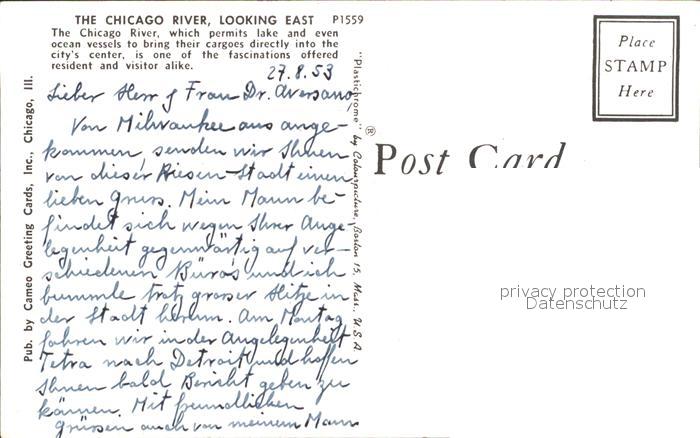 THE CHICAGO RIVER, LOOKING EAST P1559
The Chicago River, which permits lake and even
ocean vessels to bring their cargoes directly into the
city's center, is one of the fascinations offered
resident and visitor alike.
27.8.53
Lieber Herr & Frau Dr. Aversano,
Von Milwaukee aus ange-
kommen, senden wir Ihnen
von dieser Riesen-Stadt einen
lieben Gruss. Mein Mann be-
findet sich wegen Ihrer Ange-
legenheit gegenwärtig auf ver-
schiedenen Büros und ich
bummle trotz grosser Hitze in
der Stadt herum. Am Montag
fahren wir in der Angelegenheit
Tetra nach Detroit und hoffen
Ihnen bald Bericht geben zu
können. Mit freundlichen
grüssen auch von meinem Mann
Pub. by Cameo Greeting Cards, Inc., Chicago, Ill.
"Plastichrome" ® by Colourpicture, Boston 15, Mass., U.S.A.
Post Card
Place
STAMP
Here
privacy protection
Datenschutz